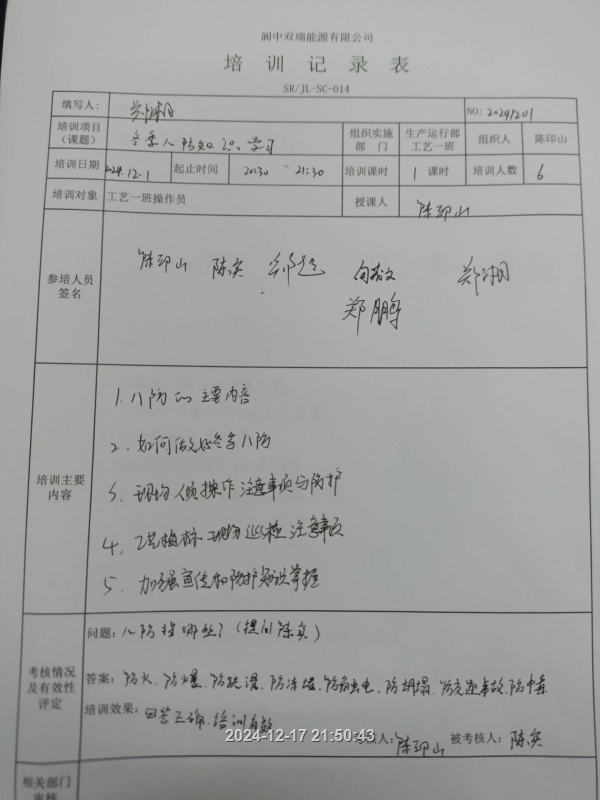 阆中双瑞能源有限公司
培训记录表
SR/JL-SC-014
填写人: 郑湘 NO: 20241201
培训项目(课题) 冬季八防知识学习 组织实施部门 生产运行部工艺一班 组织人 陈印山
培训日期 2024.12.1 起止时间 20:30 ~ 21:30 培训课时 1 课时 培训人数 6
培训对象 工艺一班操作员 授课人 陈印山
参培人员签名 陈印山 陈实 郑超 郑湘
郑鹏
培训主要内容
1. 八防的主要内容
2. 如何做好冬季八防
3. 现场人员操作注意事项与防护
4、工艺指标、现场巡检注意事项
5. 加强宣传和防护知识掌握
考核情况及有效性评定
问题: 八防指哪些?(提问陈实)
答案: 防火、防爆、防跌滑、防冻凝、防触电、防坍塌、防交通事故、防中毒
培训效果: 回答正确、培训有效
考核人: 陈印山 被考核人: 陈实
2024-12-17 21:50:43
相关部门审核